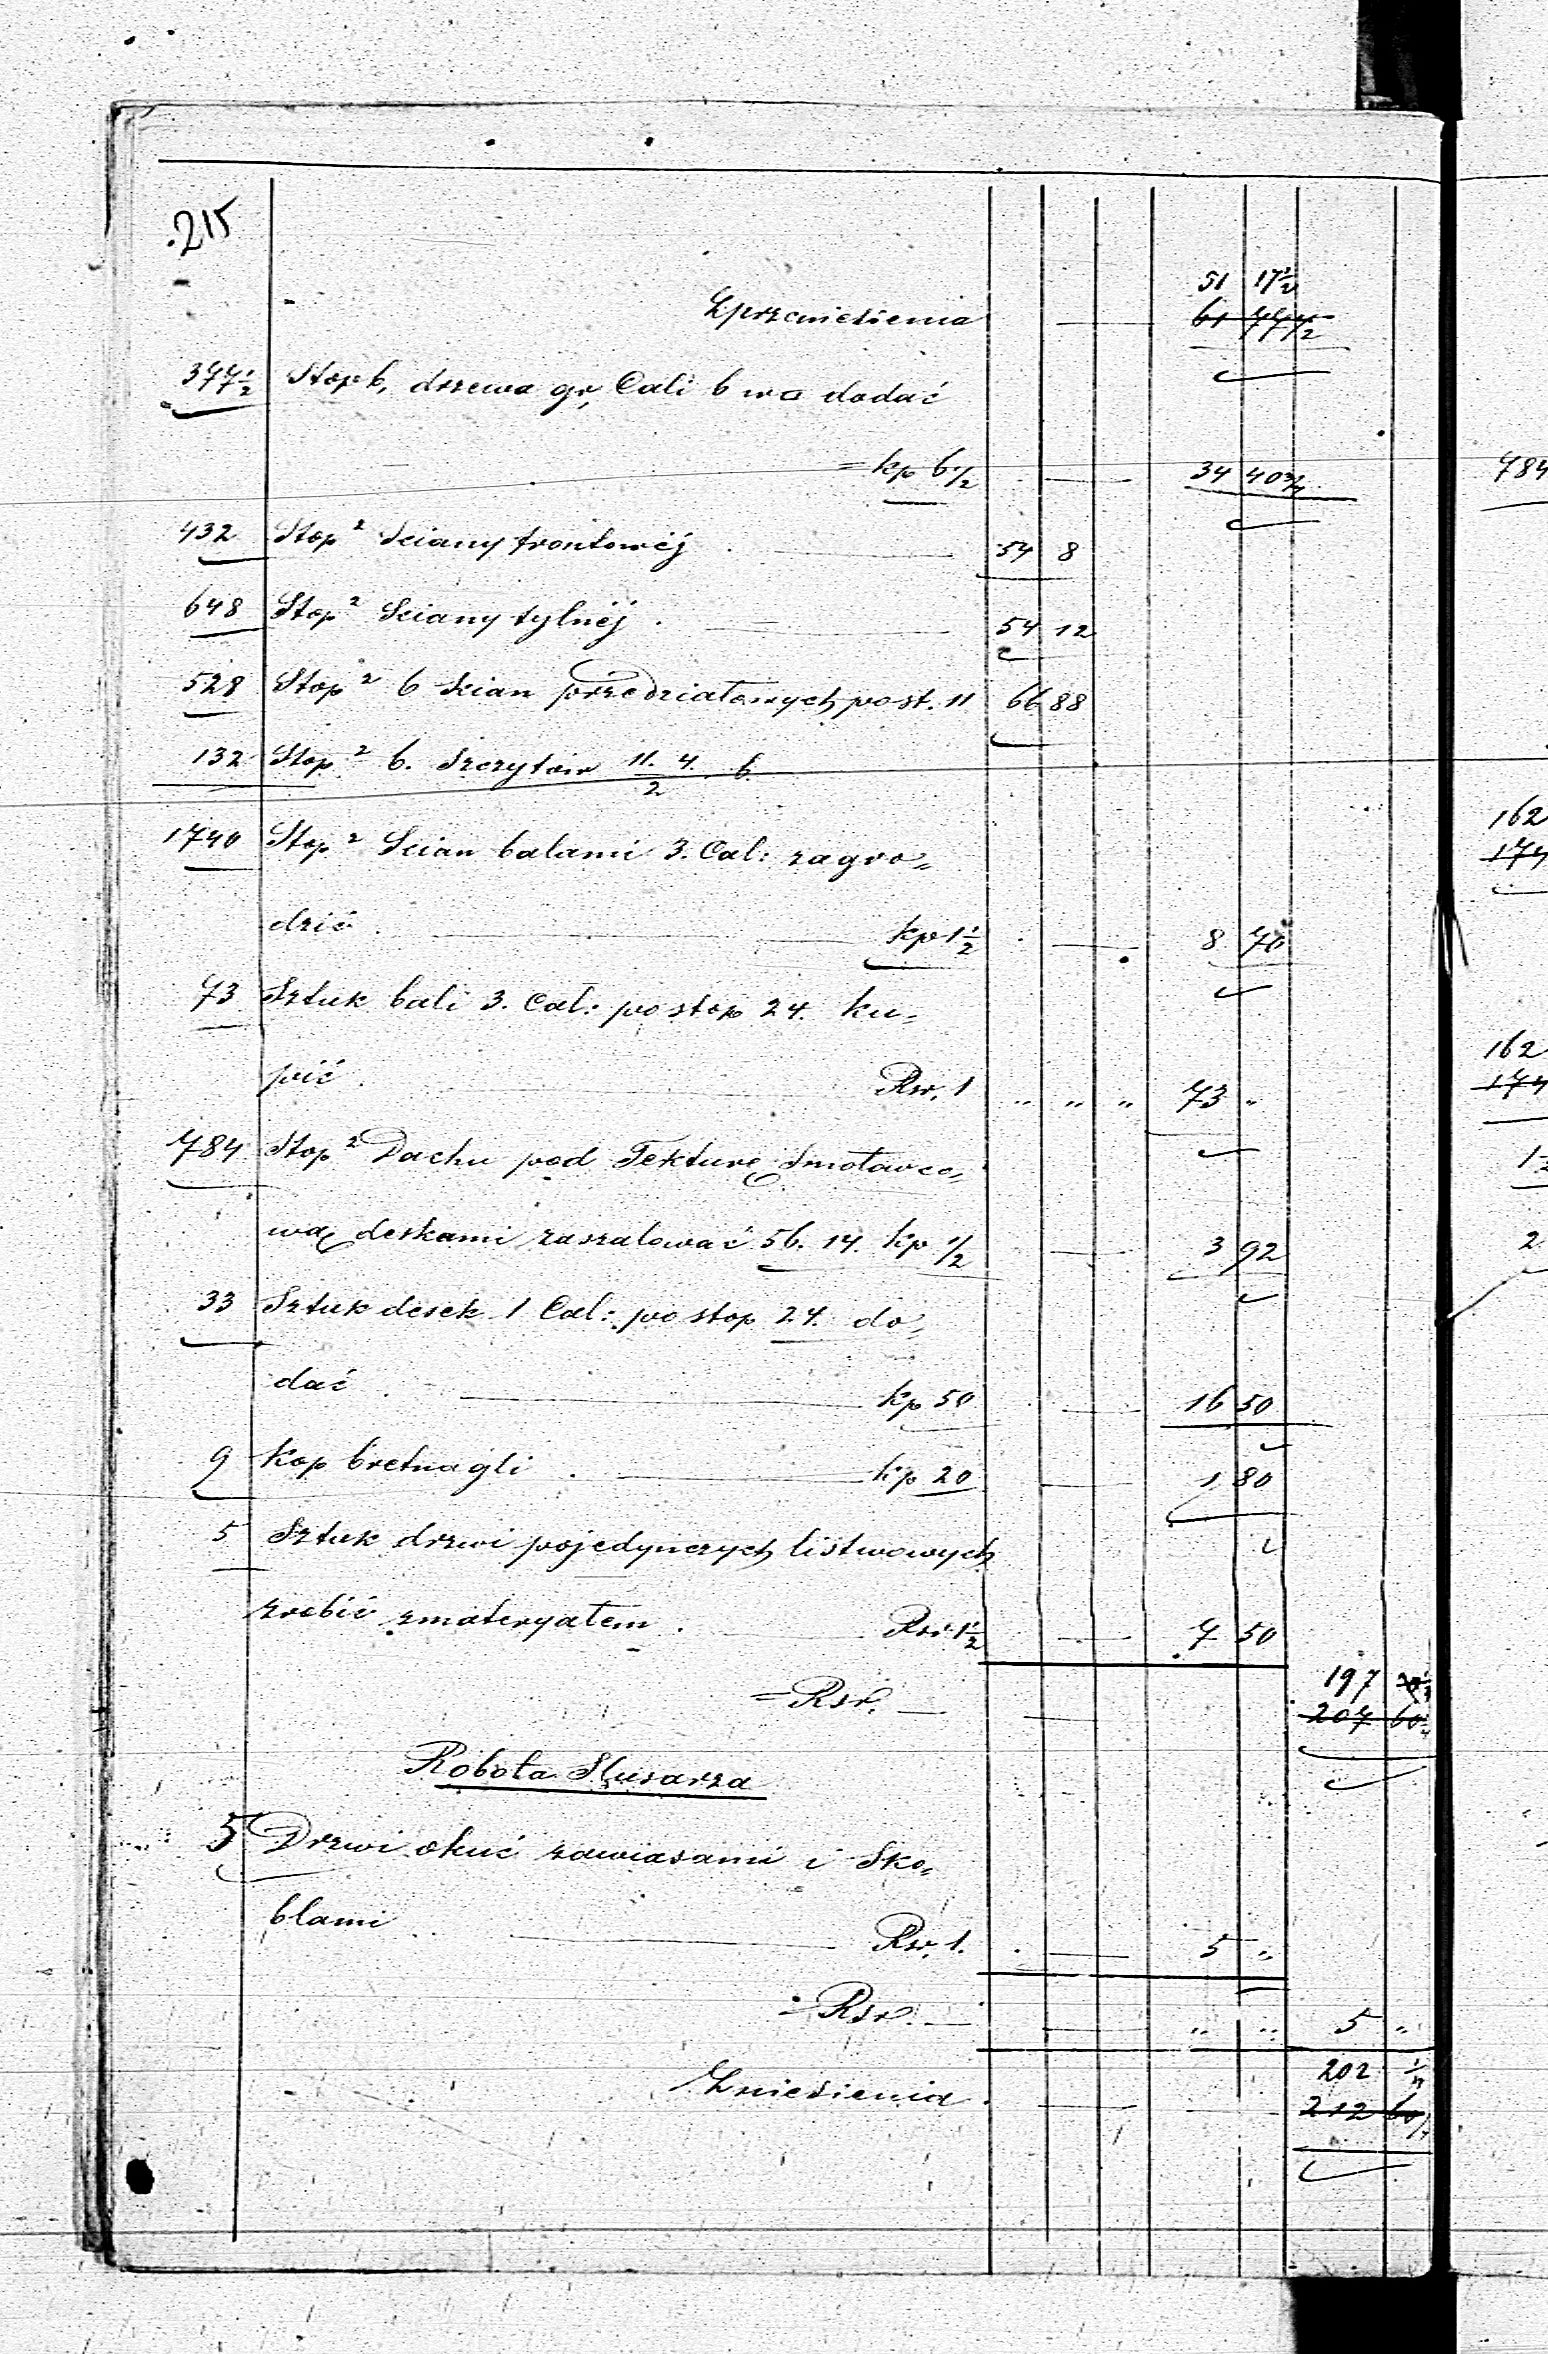 215
51 17½
Zprzeniesienia — 61 77½
377½ Stop b, drzewa gr, Cali 6 wa dodać
= kp 6½ — 34 40¾
432 Stop² Sciany frontowéj . — 54 8
648 Stop² Sciany tylnéj . — 54 12
528 Stop² 6 Scian przedziałowych po st. 11 66 88
132 Stop² 6. Szczytow 11. 4. 6
2
1740 Stop² Scian balami 3. Cal: zagro„
dzić . — kp 1½ . — 8 70
73 Sztuk bali 3. Cal: po stop 24. ku„
pić . Rsr, 1 „ „ „ 73 „
784 Stop² Dachu pod Tekturę Smołowco„
wą deskami zaszalować 56. 14. kp ½ — 3 92
33 Sztuk desek 1 Cal: po stop 24. do„
dać . — kp 50 . — 16 50
9 Kop bretnagli . — kp 20 — 1 80
5 Sztuk drzwi pojedynczych listwowych
zrobić zmateryałem . — Rsr 1½ — 7 50
197
= Rsr. — — 207 60
Robota Slusarza
5 Drzwi okuć zawiasami i Sko„
blami . . — Rsr, 1. . — 5 „
= Rsr. — — „ „ 5 „
202
Zniesienia . — — 212 60
784
162
174
162
174
2